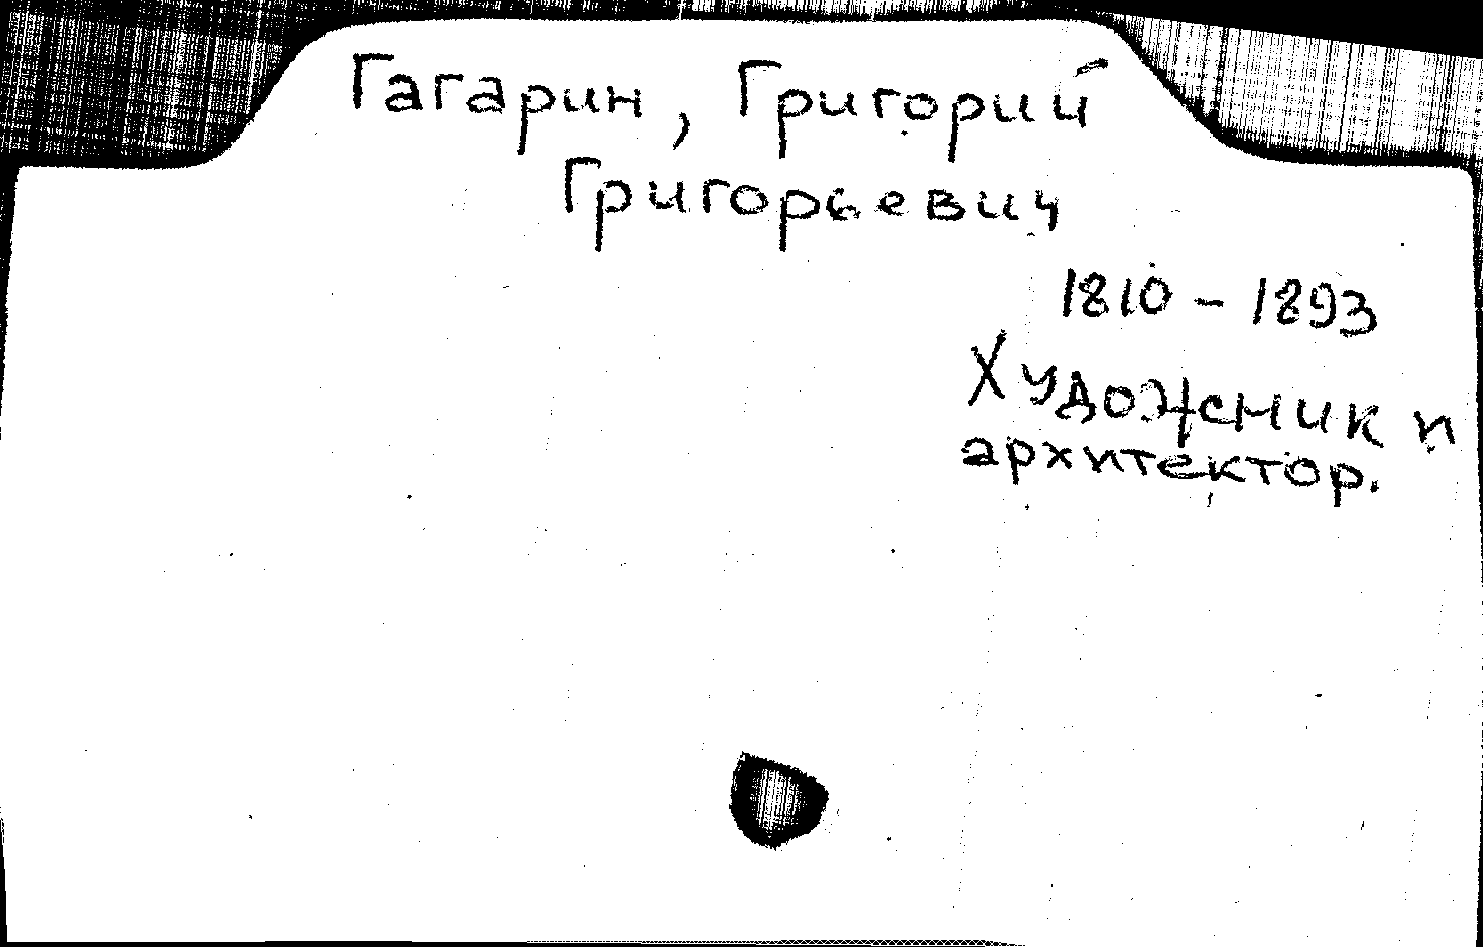 Гагарин, Григорий
Григорьевич
1810 - 1893
Художник и
архитектор.